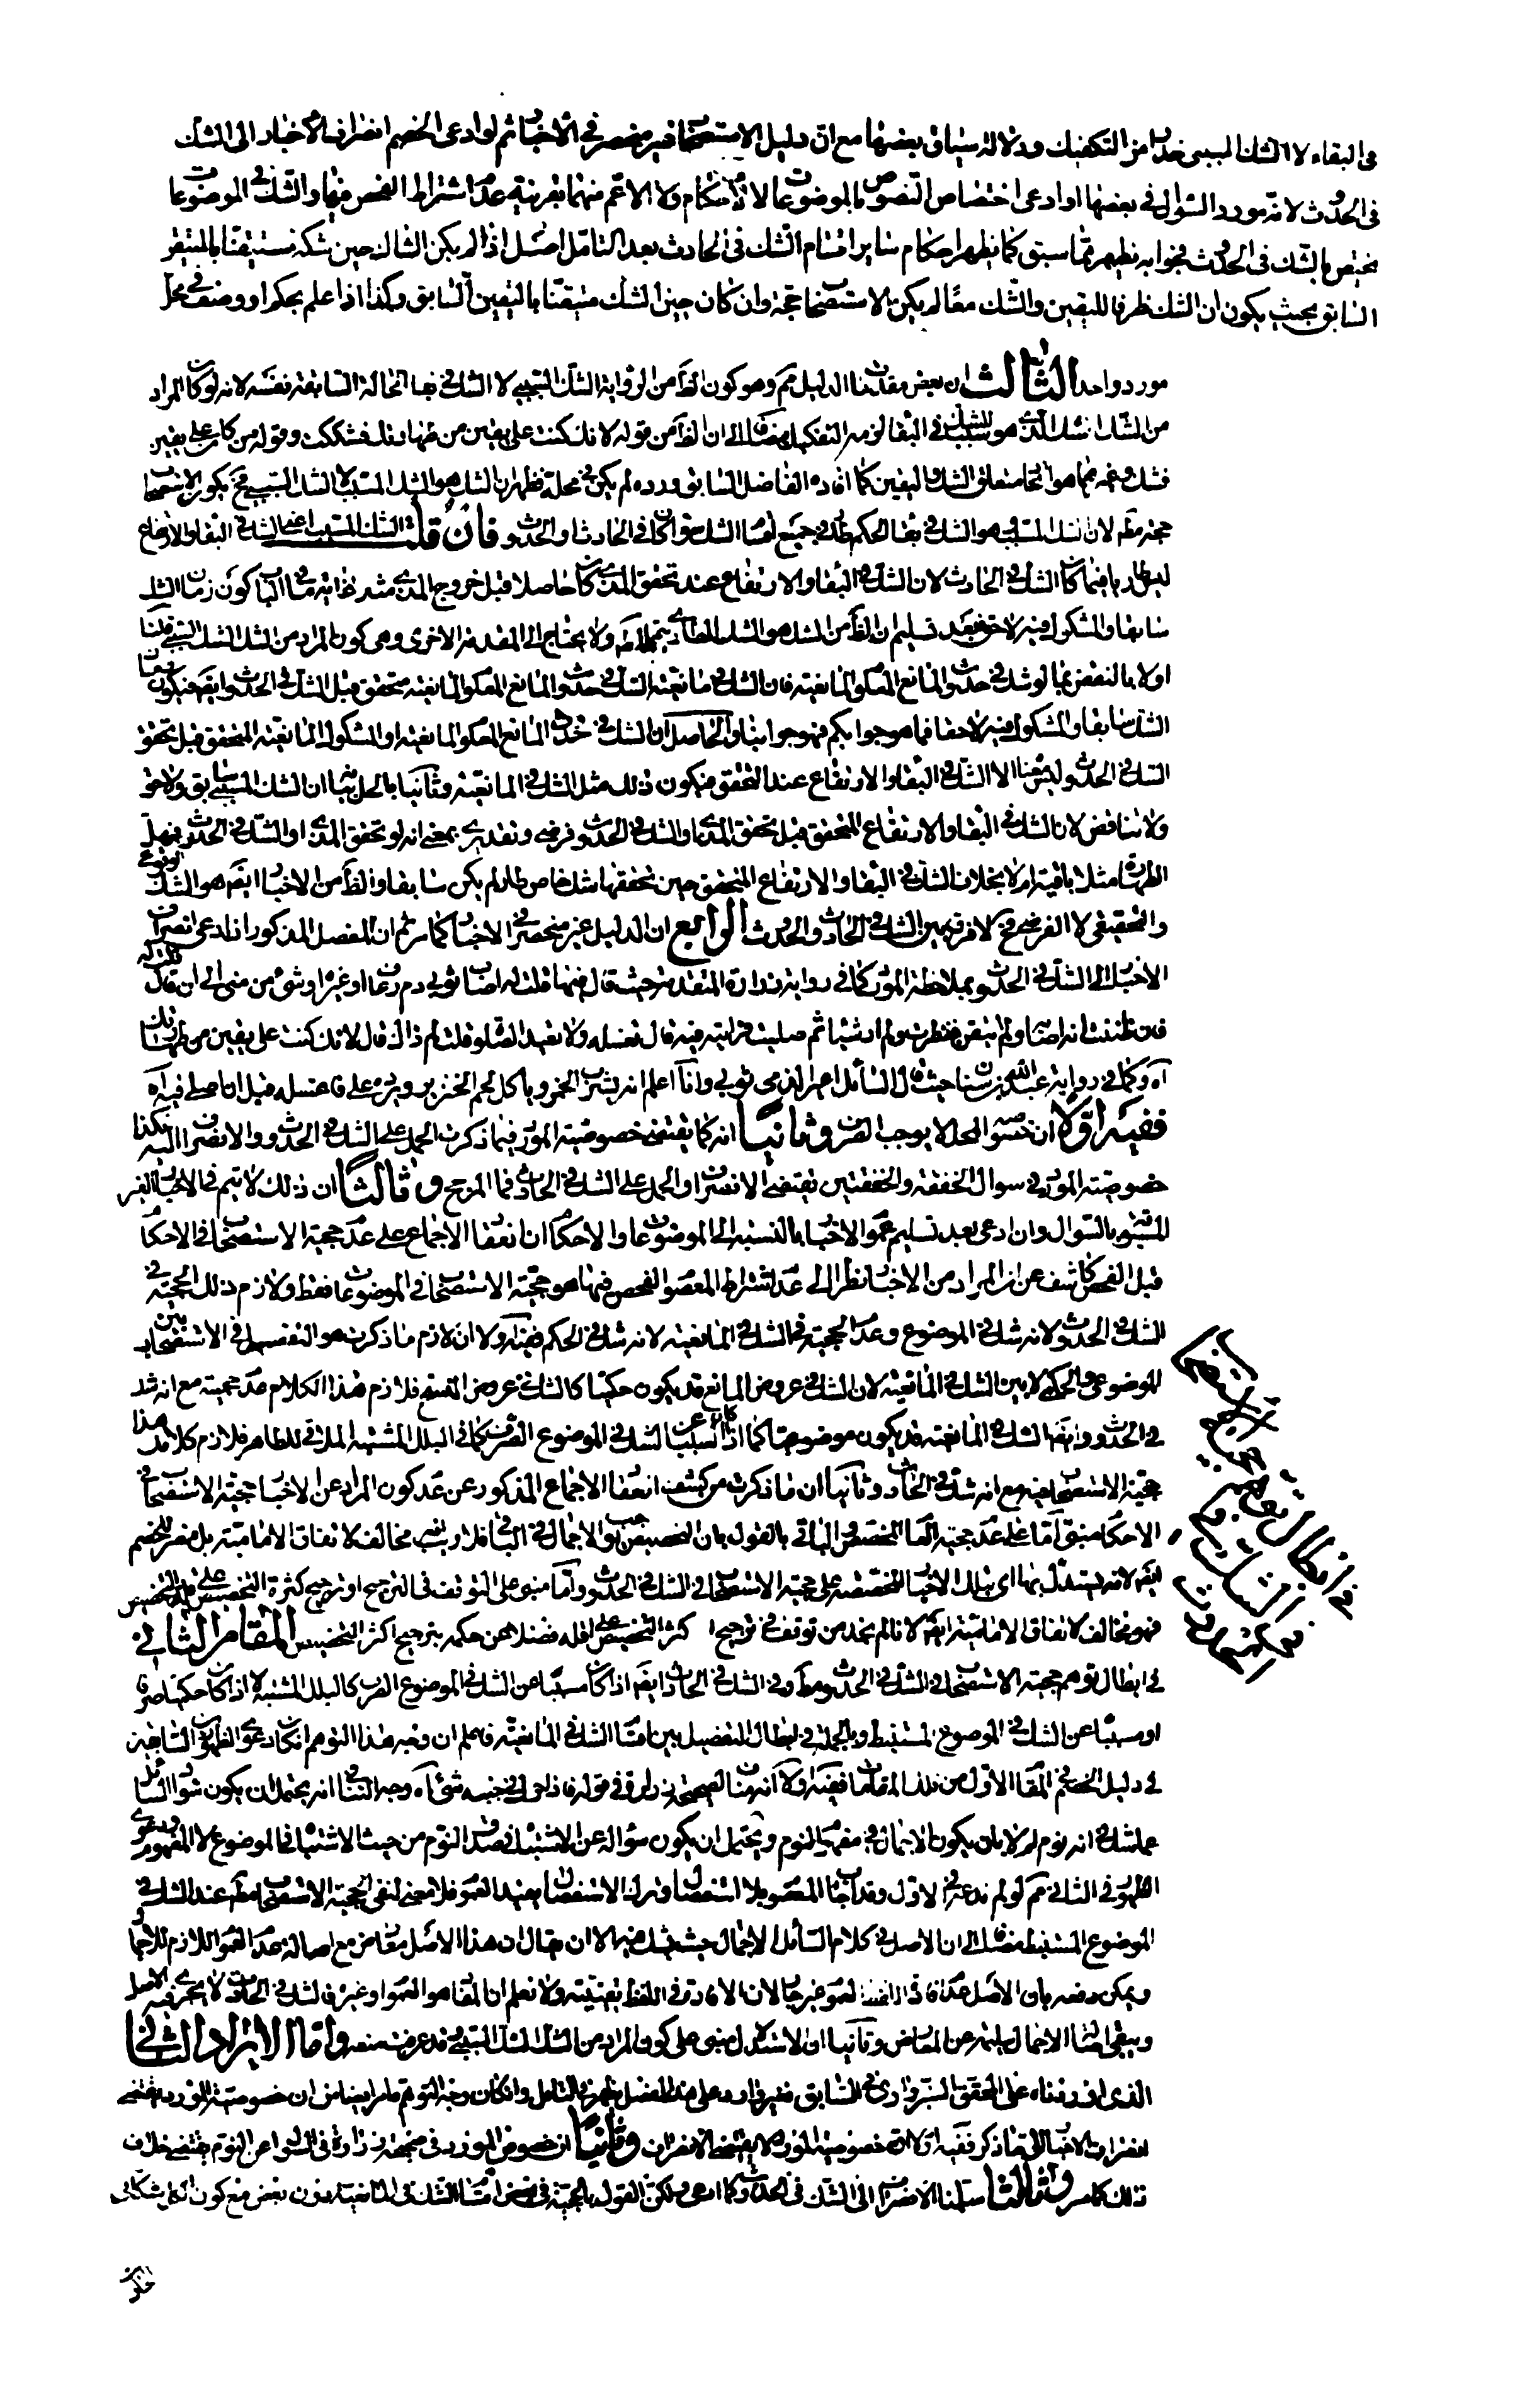 فى البقاء لا الشك المسببى خذلا من التفكيك ودلالة سياق بعضها مع ان دليل الاستصحاب غير منحصر فى الأخبار ثم لو ادعى الخصم انصراف الأخبار الى الشك
فى الحدوث لانه مورد السؤال فى بعضها او ادعى اختصاص النصوص بالموضوعات لا الاحكام ولا الاعم منهما بقرينة عدم اشتراط الفحص فيها والشك فى الموضوعات
يختص بالشك فى الحدوث فجوابه يظهر مما سبق كما يظهر احكام ساير اقسام الشك فى الحادث بعد التامل اصل اذا لم يكن الشاك حين شكه مستيقنا بالمتيقن
السابق بحيث يكون ان الشك ظرفا لليقين والشك معا لم يكن الاستصحاب حجة وان كان حين الشك متيقنا باليقين السابق وكذا اذا علم بحكم او وضع فى محل
مورد واحد الثالث ان بعض مقدمات هذا الدليل مم وهو كون الظ من الرواية الشك السببى لا الشك فى بقاء الحالة السابقة نفسه لانه لو كان المراد
من الشك الشك الذى هو سبب للشك فى البقاء لزم التفكيك مضافا الى ان الظ من قوله لانك كنت على يقين من طهارتك فشككت وقوله من كان على يقين
فشك وغيرهما هو اتحاد متعلق الشك واليقين كما افاده الفاضل السابق ورده لم يكن فى محله فظهر ان الشك هو الشك المسبب لا الشك السببى فح يكون الاستصحاب
حجة مطم لان الشك المسبب وهو الشك فى بقاء الحكم طار فى جميع اقسام الشك سواء كان فى الحادث او الحدوث فان قلت الشك المسبب اعنى الشك فى البقاء والارتفاع
ليس طاريا فيما كان الشك فى الحادث لان الشك فى البقاء والارتفاع عند تحقق المذى كان حاصلا قبل خروج المذى مثلا غاية ما فى الباب كون زمان الشك
سابقا والمشكوك فيه لاحقا فبعد تسليم ان الظ من الشك هو الشك الطارى يتم المط ولا يحتاج الى المقدمة الاخرى وهى كون المراد من الشك الشك السببى قلنا
اولا بالنقض بما لو شك فى حدوث المانع المعلوم المانعية فان الشك فى مانعية الشك فى حدوث المانع المعلوم المانعية متحقق قبل الشك فى الحدوث ايضم فيكون زمان
الشك سابقا والمشكوك فيه لاحقا فما هو جوابكم فهو جوابنا والحاصل ان الشك فى حدوث المانع المعلوم المانعية او المشكوك المانعية المتحقق قبل تحقق
الشك فى الحدوث وليس هنا الا الشك فى البقاء والارتفاع عند التحقق فيكون ذلك مثل الشك فى المانعية وثانيا بالحل بان الشك المسبب سابق ولاحق
ولا تناقض لان الشك فى البقاء والارتفاع المتحقق قبل تحقق المذى او الشك فى الحدوث فرضى وتقديرى بمعنى انه لو تحقق المذى او الشك فى الحدوث فهل
الطهارة مثلا باقية ام لا بخلاف الشك فى البقاء والارتفاع المتحقق حين تحققهما شك خاص طار لم يكن سابقا والظ من الاخبار ايضم هو الشك الوقوعى
والتحقيقى لا الفرضى فح لا فرق بين الشك فى الحادث والحدوث الرابع ان الدليل غير منحصر فى الاخبار كما مر ثم ان المفصل المذكور اذا ادعى انصراف
الاخبار الى الشك فى الحدوث بملاحظة المورد كما فى رواية زرارة المتقدمة حيث قال فيها قلت له اصاب ثوبى دم رعاف او غيره او شئ من منى الى ان قال قلت له
فان ظننت انه اصابه ولم اتيقن فنظرت ولم ار شيئا ثم صليت فرايته فيه قال تغسله ولا تعيد الصلوة قلت لم ذاك قال لانك كنت على يقين من طهارتك
اه وكما فى رواية عبد الله بن سنان حيث قال السائل اعير الذمى ثوبى وانا اعلم انه يشرب الخمر وياكل لحم الخنزير ويرده على فاغسله قبل ان اصلى فيه اه
ففيه اولا ان خصوصية المحل لا يوجب الصرف وثانيا انه كما يقتضى خصوصية المورد فيما ذكرت الحمل على الشك فى الحدوث والانصراف اليه فكذا
خصوصية المورد فى سؤال الخفقة والخفقتين يقتضى الانصراف او الحمل على الشك فى الحادث فما المرجح وثالثا ان ذلك لا يتم فى الاخبار الغير
المسبوقة بالسؤال وان ادعى بعد تسليم عموم الاخبار بالنسبة الى الموضوعات والاحكام ان انعقاد الاجماع على عدم حجية الاستصحاب فى الاحكام
قبل الفحص كاشف عن ان المراد من الاخبار نظرا الى عدم اشتراط المعصوم الفحص فيها هو حجية الاستصحاب فى الموضوعات فقط ولازم ذلك الحجية فى
الشك فى الحدوث لانه شك فى الموضوع وعدم الحجية فى الشك فى المانعية لانه شك فى الحكم ففيه اولا ان لازم ما ذكرت هو التفصيل فى الاستصحاب بين
الموضوعى والحكمى لا بين الشك فى المانعية لان الشك فى عروض المانع قد يكون حكميا كالشك فى عروض النسخ فلازم هذا الكلام عدم حجية مع انه شك
فى الحدوث وايضم الشك فى المانعية قد يكون موضوعيا كما اذا كان مسببا عن الشك فى الموضوع الصرف كما فى البلل المشتبه الملاقى للطاهر فلازم كلامه هذا
حجية الاستصحاب فيه مع انه شك فى الحادث وثانيا ان ما ذكرت من كشف انعقاد الاجماع المذكور عن عدم كون المراد عن الاخبار حجية الاستصحاب فى
الاحكام مبنى اما على عدم حجية العام المخصص فى الباقى بالقول بان التخصيص يوجب الاجمال فى الباقى فلا ريب مخالف لاتفاق الامامية بل مضر للخصم
ايضم لانه يستدل بها اى بتلك الاخبار المخصصة على حجية الاستصحاب فى الشك فى الحدوث واما مبنى على التوقف فى الترجيح او ترجيح كثرة التخصيص على قلة التخصيص
فهو مخالف لاتفاق الامامية ايضم لانا لم نجد من توقف فى ترجيح اكثر التخصيص على اقله فضلا عن حكمه بترجيح اكثر التخصيص المقام الثانى
فى ابطال توهم حجية الاستصحاب فى الشك فى الحدوث مطم وفى الشك فى الحادث ايضم اذا كان مسببا عن الشك فى الموضوع الصرف كالبلل المشتبه لا اذا كان حكميا صرفا
او مسببا عن الشك فى الموضوع المستنبط وبالجملة فى ابطال التفصيل بين اقسام الشك فى المانعية فاعلم ان وجه هذا التوهم ان كان دعوى الظهور السابق
فى دليل الخصم فى المقام الاول من تلك المقامات ففيه اولا انه هنا لصحيحة زرارة فى قوله فان حرك فى جنبه شئ اه وجه التنافى انه يحتمل ان يكون سؤال السائل
عما شك فى انه نوم ام لا بان يكون الاجمال فى مفهوم النوم ويحتمل ان يكون سؤاله عن الاشتباه فى صدق النوم من حيث الاشتباه فى الموضوع لا المفهوم ودعوى
الظهور فى الثانى مم لو لم ندعه فى الاول وقد اجاب المعصوم بلا استفصال وترك الاستفصال يفيد العموم فلا معنى لنفى حجية الاستصحاب مطم عند الشك فى
الموضوع المستنبط مضافا الى ان الاصل فى كلام السائل الاجمال حيث يشك فيه الا ان يقال ان هذا الاصل معارض مع اصالة عدم العموم اللازم للاجمال
ويمكن دفعه بان الاصل عدم افادة اللفظ العموم غير جار لان الافادة فى اللفظ يقينية ولا نعلم ان المفاد هو العموم او غيره فالشك فى الحادث لا يجرى فيه الاصل
ويبقى اصالة الاجمال سليمة عن المعارض وثانيا ان الاستدلال مبنى على كون المراد من الشك الشك السببى وقد عرفت منعه واما الايراد الثانى
الذى اوردناه على المحقق السبزوارى فى السابق فغير وارد على هذا المفصل يظهر بالتامل وان كان وجه التوهم ما مر ايضا من ان خصوصية المورد يقتضى
انصراف الاخبار الى ما ذكر ففيه اولا ان خصوصية المورد لا يقتضى الانصراف وثانيا ان خصوص المورد فى صحيحة زرارة فى السؤال عن النوم يقتضى خلاف
ذلك كما مر وثالثا سلمنا الانصراف الى الشك فى الحدوث كما ادعى ولكن القول بالحجية فى بعض اقسام الشك فى المانعية دون بعض مع كون الكل شكا فى
خلاف
فى ابطال توهم حجية الاستصحاب
فى الشك فى
الحدوث